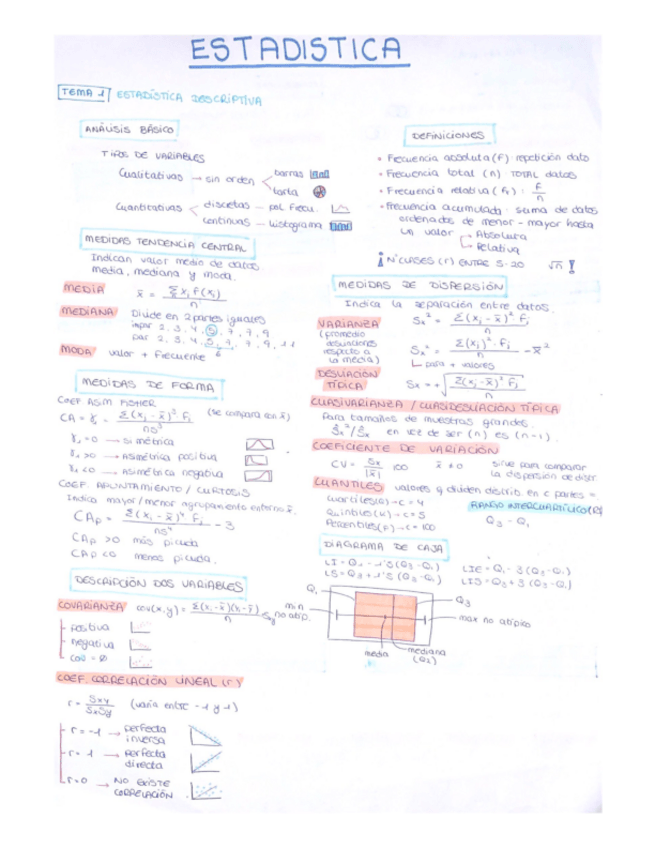 ESTADISTICA
TEMA 1 ESTADÍSTICA DESCRIPTIVA
ANÁLISIS BÁSICO
TIPOS DE VARIABLES
Cualitativas → sin orden
barras
tarta
Cuantitativas
discretas — pol. Frecu.
continuas — histograma
MEDIDAS TENDENCIA CENTRAL
Indican valor medio de datos
media, mediana y moda.
MEDIA x̄ = Σxᵢ f(xᵢ) / n
MEDIANA Divide en 2 partes iguales
impar 2, 3, 4, 5, 7, 7, 9
par 2, 3, 4, 5, 7, 9, 11
6
MODA valor + Frecuente
MEDIDAS DE FORMA
COEF ASIM. FISHER
CA = γ₁ = Σ(xᵢ - x̄)³ · Fᵢ / ns³ (se compara con x̄)
γ₁ = 0 → simétrica
γ₁ > 0 → Asimétrica positiva
γ₁ < 0 → Asimétrica negativa
COEF. APUNTAMIENTO / CURTOSIS
Indica mayor/menor agrupamiento entorno x̄.
CAp = Σ(xᵢ - x̄)⁴ Fᵢ / ns⁴ - 3
CAp > 0 más picuda
CAp < 0 menos picuda.
DESCRIPCIÓN DOS VARIABLES
COVARIANZA cov(x,y) = Σ(xᵢ - x̄)(yᵢ - ȳ) / n Sxy
positiva
negativa
cov = Ø
COEF. CORRELACIÓN LINEAL (r)
r = Sxy / SxSy (varía entre -1 y 1)
r = -1 → perfecta
inversa
r = 1 → perfecta
directa
r = 0 → NO EXISTE
CORRELACIÓN
DEFINICIONES
• Frecuencia absoluta (F): repetición dato
• Frecuencia total (n): TOTAL datos
• Frecuencia relativa (fr): F/n
• Frecuencia acumulada: suma de datos
ordenados de menor - mayor hasta
un valor
Absoluta
Relativa
¡ Nº CLASES (r) ENTRE 5-20 √n !
MEDIDAS DE DISPERSIÓN
Indica la separación entre datos.
VARIANZA Sx² = Σ(xᵢ - x̄)² Fᵢ / n
(promedio
desviaciones
respecto a
la media)
Sx² = Σ(xᵢ)² · Fᵢ / n - x̄²
para + valores
DESVIACIÓN
TÍPICA Sx = +√Σ(xᵢ - x̄)² Fᵢ / n
CUASIVARIANZA / CUASIDESVIACIÓN TÍPICA
Para tamaños de muestras grandes.
Ŝx² / Ŝx en vez de ser (n) es (n-1).
COEFICIENTE DE VARIACIÓN
CV = Sx / |x̄| 100 x̄ ≠ 0 sirve para comparar
la dispersión de distr.
CUANTILES valores q dividen distrib. en c partes =
Cuartiles (Q) → c = 4
Quintiles (K) → c = 5
Percentiles (P) → c = 100
RANGO INTERCUARTÍLICO (R)
Q₃ - Q₁
DIAGRAMA DE CAJA
LI = Q₁ - 1'5 (Q₃ - Q₁)
LS = Q₃ + 1'5 (Q₃ - Q₁)
LIE = Q₁ - 3 (Q₃ - Q₁)
LIS = Q₃ + 3 (Q₃ - Q₁)
Q₁
min
no atíp.
Q₃
max no atípico
media
x̄
mediana
(Q₂)